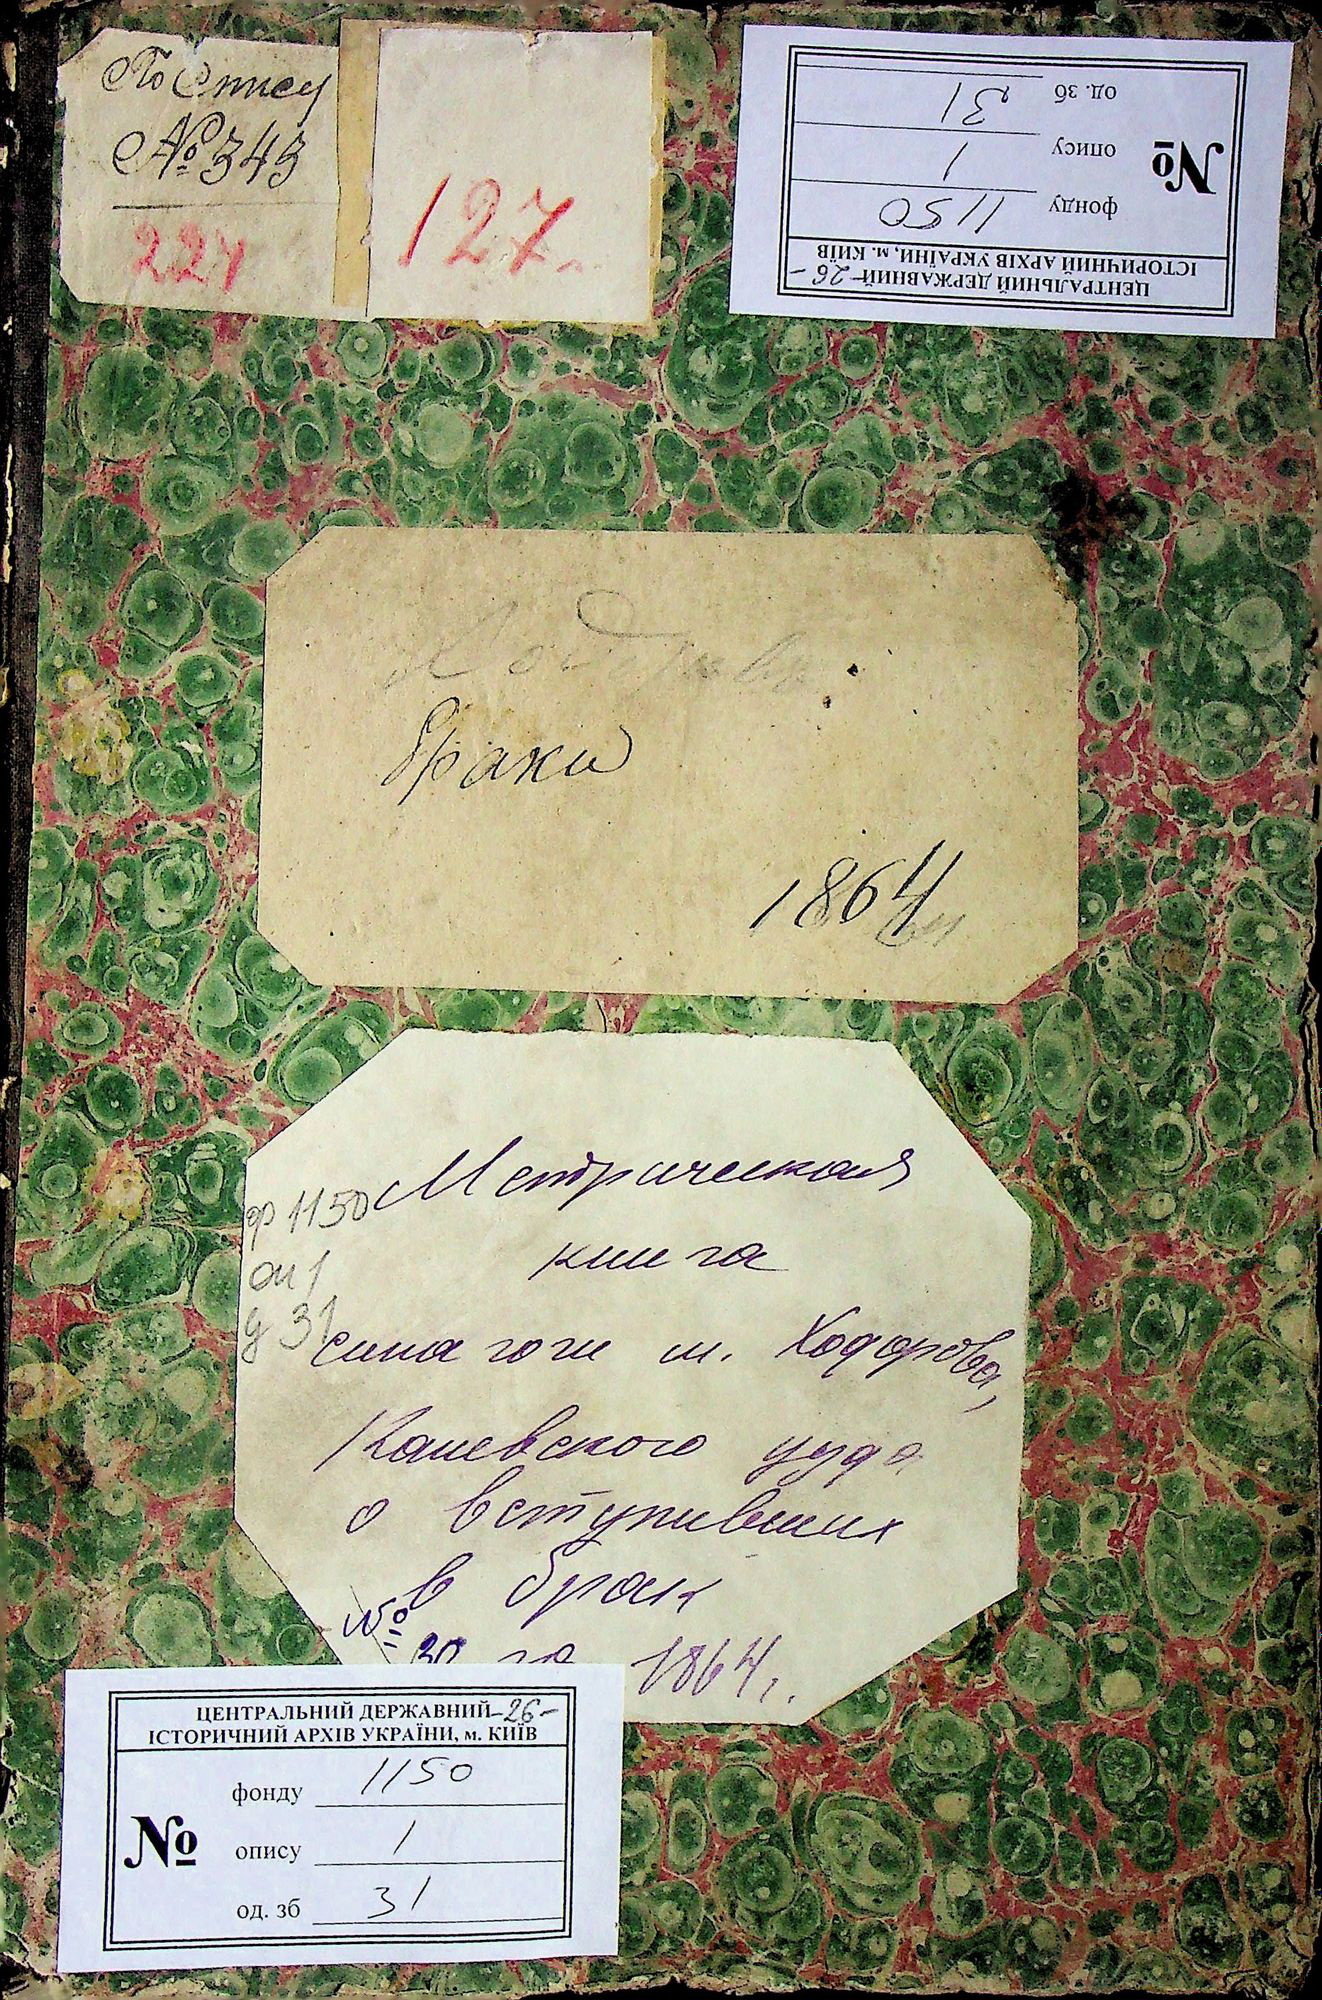 По Опису
№ 343
224
127.
ЦЕНТРАЛЬНИЙ ДЕРЖАВНИЙ -26-
ІСТОРИЧНИЙ АРХІВ УКРАЇНИ, м. КИЇВ
№
фонду 1150
опису 1
од. зб 31
Браки
1864
Метрическая
книга
синагоги м. Ходорова,
Каневского уезда
о вступивших
в брак
№
за 1864 г.
ф 1150
оп 1
д 31
ЦЕНТРАЛЬНИЙ ДЕРЖАВНИЙ -26-
ІСТОРИЧНИЙ АРХІВ УКРАЇНИ, м. КИЇВ
№
фонду 1150
опису 1
од. зб 31